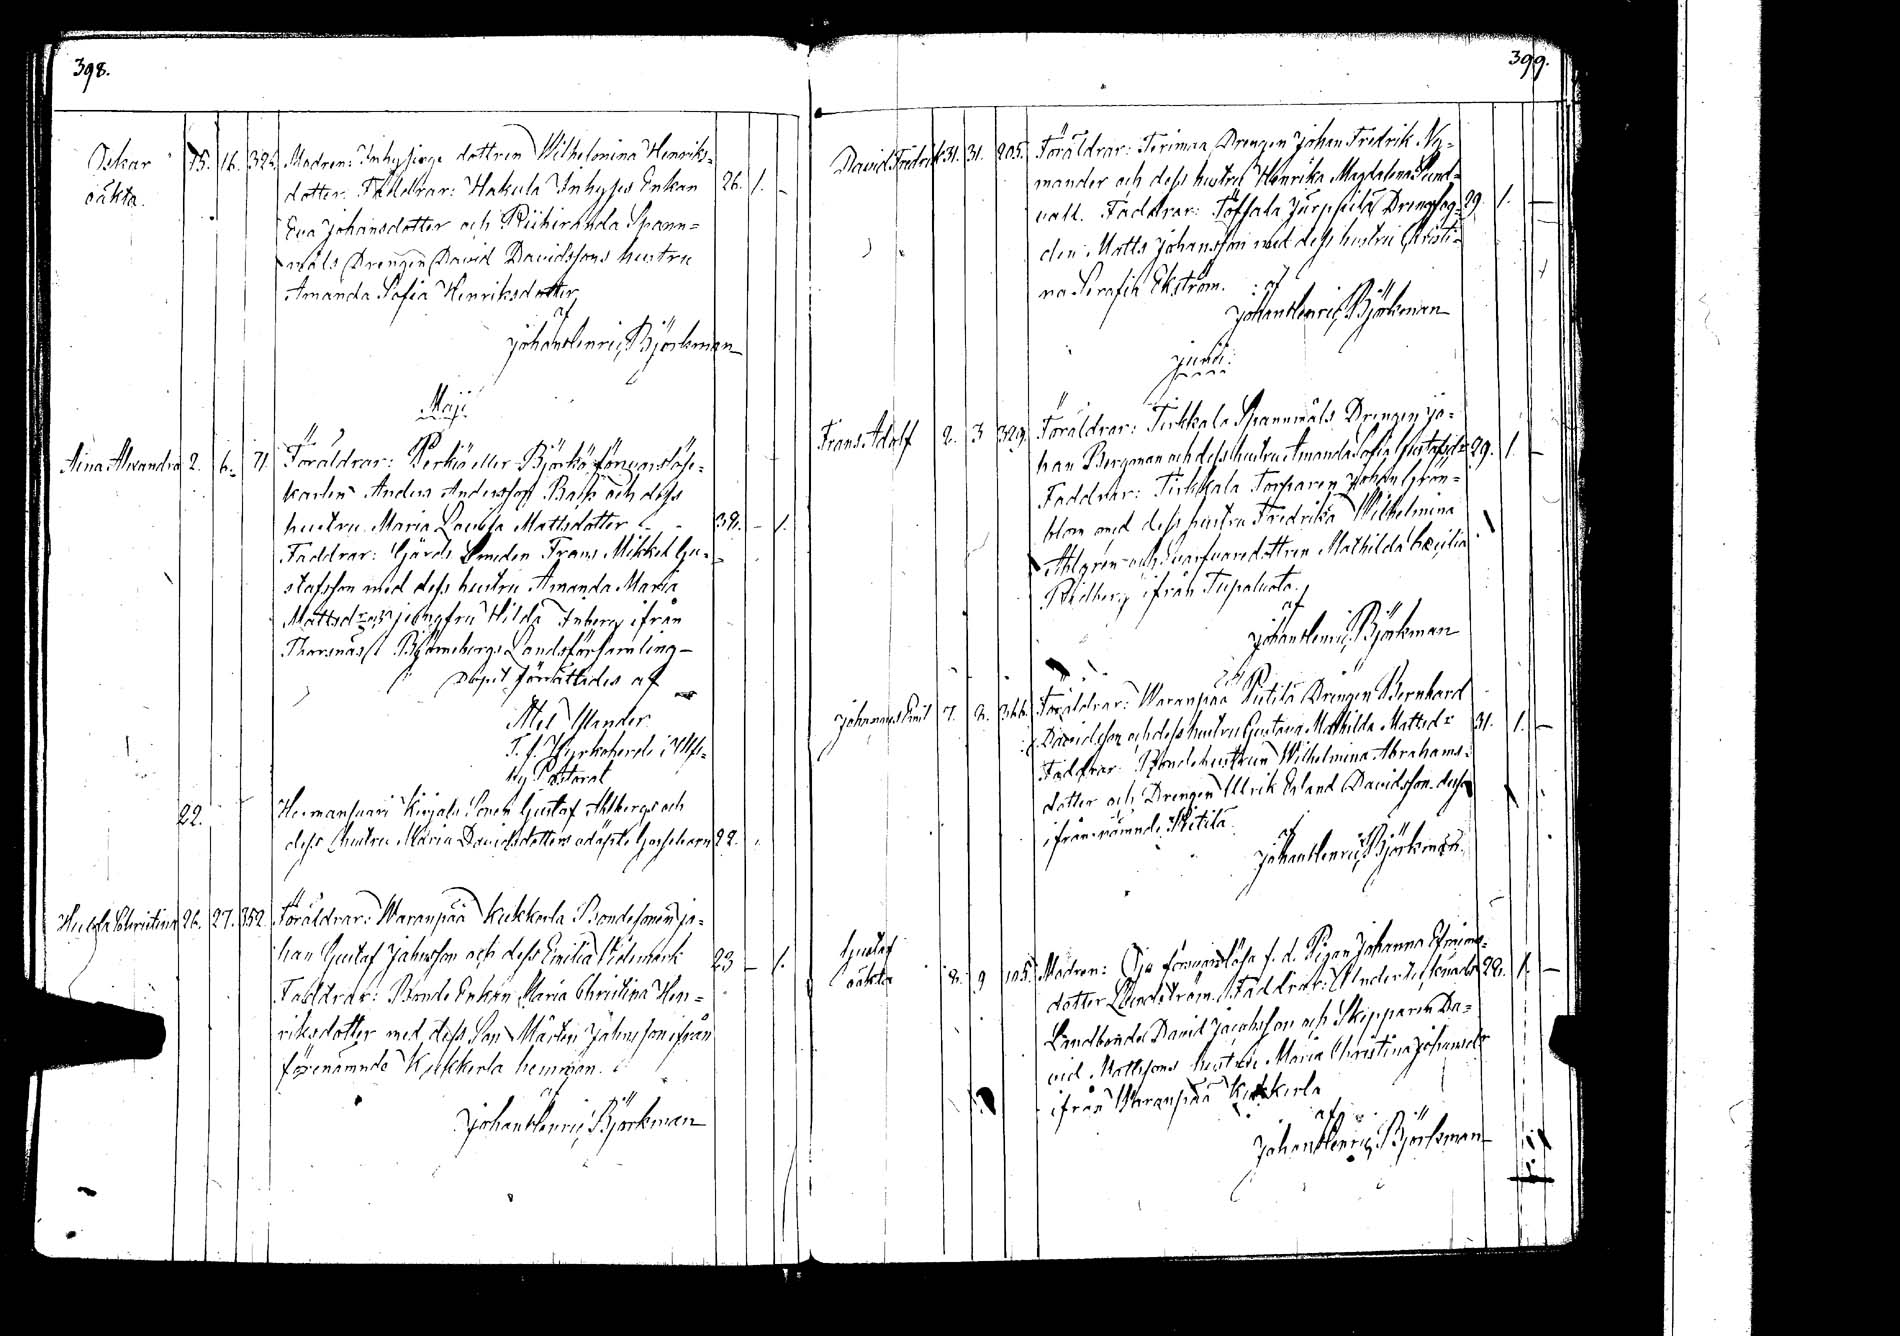 398.
Oskar 15. 16. 326. Modren: Inhysinge dottren Wilhelmina Henriks-
oäkta. dotter. Faddrar: Hakula Inhyses Enkan 26. 1. -
Eva Johansdotter och Riihiranda Spann-
måls Drengen David Davidssons hustru
Amanda Sofia Henriksdotter
af
Johan Henric Björkman
Maji
Aina Alexandra 2. 6. 71. Föräldrar: Perkiö eller Björkö försvarslöse-
karlen Anders Andersson och dess
hustru Maria Lovisa Mattsdotter - 1.
Faddrar: Gårds Smeden Frans Mikkel Gu-
stafsson med dess hustru Amanda Maria
Mattsdr och jungfru Hilda Inberg ifrån
Thorsnäs i Björneborgs Landsförsamling -
Dopet förrättades af
T. f. Kyrkoherde i Ulfs-
by Pastorat
22.
Hermansaari Sonen Gustaf Ahlbergs och
dess hustru Maria Davidsdotters odöpte Gossebarn 22.
Hulda Christina 26. 27. 352. Föräldrar: Waranpää Kukkerla Bondesonen Jo-
han Gustaf Jahnsson och dess Emilia Widemark 23 - 1.
Faddrar: Bonde Enkan Maria Christina Hen-
riksdotter med dess Son Mårten Jahnsson ifrån
förenämnde Kukkerla hemman.
af
Johan Henric Björkman
399.
David Fredrik 31. 31. 205. Föräldrar: Terimaa Drengen Johan Fredrik Ny-
mander och dess hustru Henrika Magdalena Sund-
vall. Faddrar: Töfsala Drengfog- 29. 1. -
den Matts Johansson med dess hustru Christi-
na Serafia Ekström. af
Johan Henric Björkman
Junii
Frans Adolf 2. 3 329. Föräldrar: Tirkkala Spannmåls Drengen Jo-
han Bergman och dess hustru Amanda Sofia Gustafsdr 29. 1. -
Faddrar: Tirkkala Torparen Johan Grön-
blom med dess hustru Fredrika Wilhelmina
Ahlgren och dottren Mathilda Cecilia
Ridberg ifrån Tupaluoto.
af
Johan Henric Björkman
Johannes Emil 7. 366. Föräldrar: Waranpää Pietilä Drengen Bernhard
Davidsson och dess hustru Gustava Mathilda Mattsdr 31. 1. -
Faddrar: Bondehustrun Wilhelmina Abrahams-
dotter och Drengen Ulrik Erland Davidsson dessa
ifrån nämnde Pietilä.
af
Johan Henric Björkman
Gustaf
oäkta 8. 9 105. Modren: försvarslösa f. d. Pigan Johanna
dotter Lundström. Faddrar: 1. -
Landbonde David Jacobsson och Skepparen Da-
vid Mattsons hustru Maria Christina Johansdr
ifrån Waranpää Kukkerla
af
Johan Henric Björkman